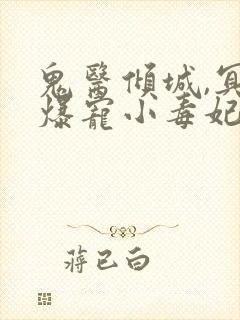 鬼醫傾城,冥
爆寵小毒妃
蔣已白